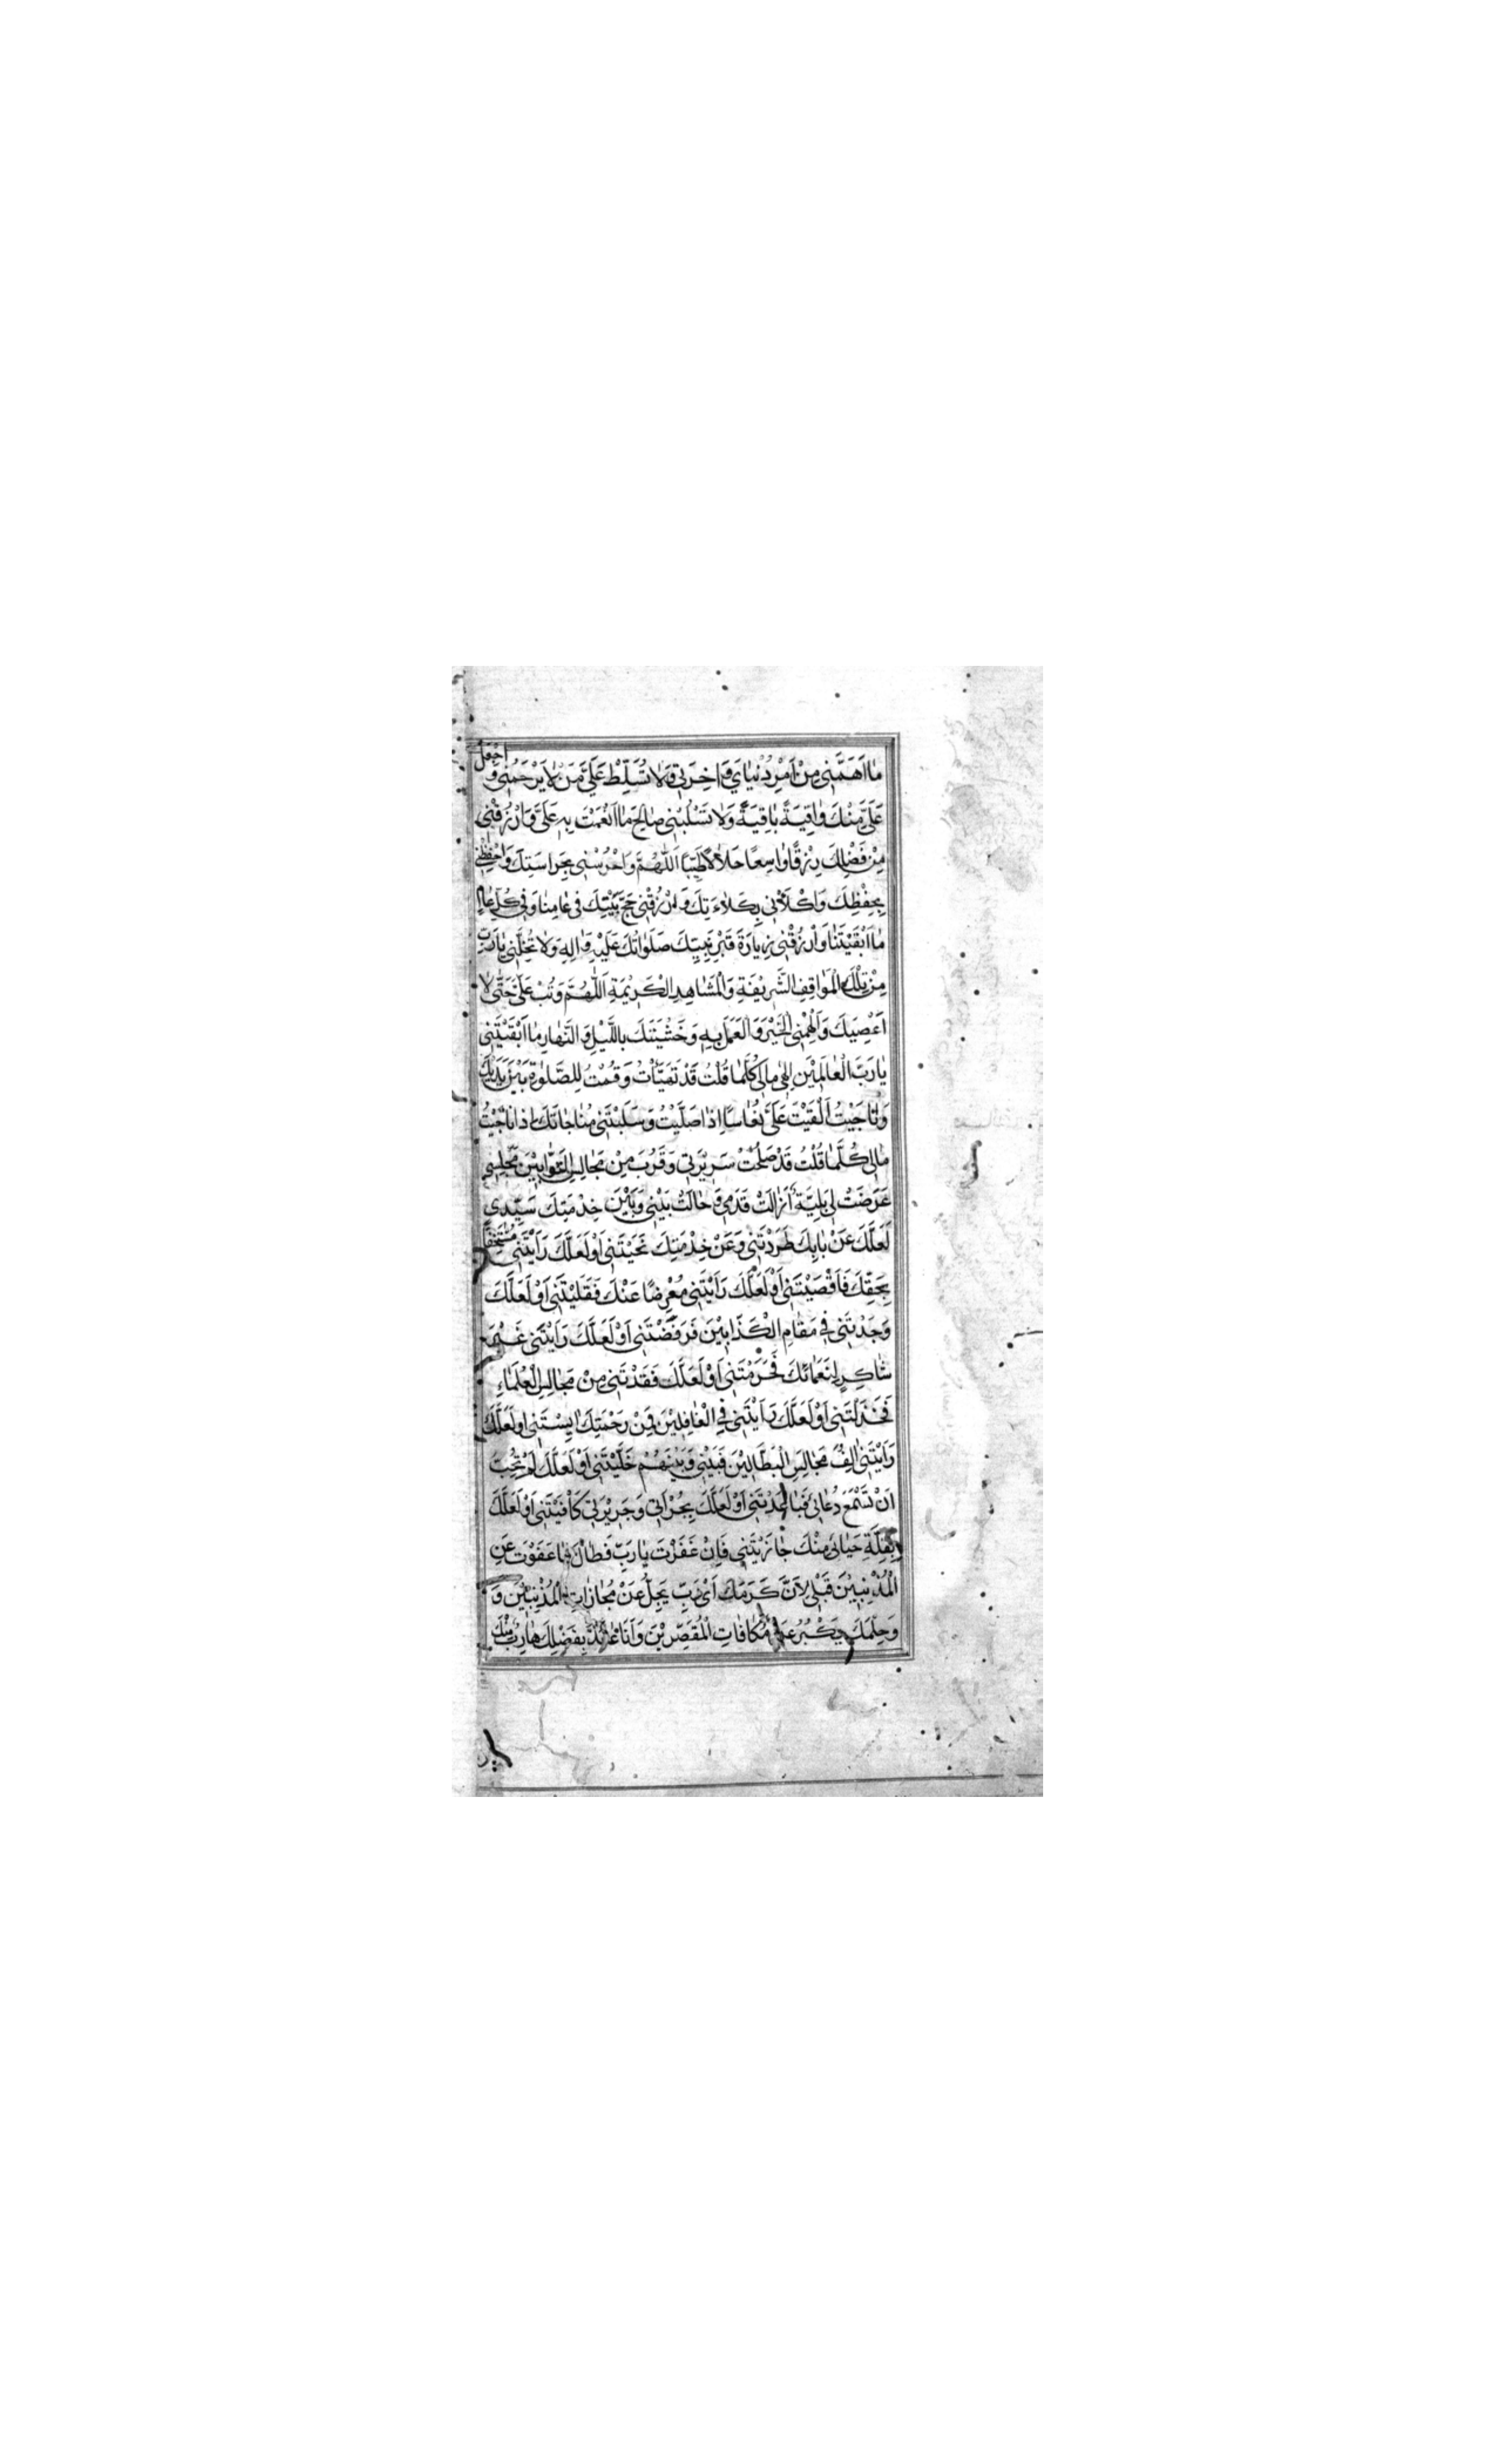 مٰا اَهَمَّنِي مِنْ اَمْرِ دُنْيٰايَ وَ اٰخِرَتِي وَلاٰ تُسَلِّطْ عَلَيَّ مَنْ لاٰ يَرْحَمُنِي وَ اجْعَلْ
عَلَيَّ مِنْكَ وٰاقِيَةً بٰاقِيَةً وَلاٰ تَسْلُبْنِي صٰالِحَ مٰا اَنْعَمْتَ بِهِ عَلَيَّ وَارْزُقْنِي
مِنْ فَضْلِكَ رِزْقًا وٰاسِعًا حَلاٰلاً طَيِّبًا اَللّٰهُمَّ وَاحْرُسْنِي بِحَرٰاسَتِكَ وَاحْفَظْنِي
بِحِفْظِكَ وَاكْلَأْنِي بِكَلاٰءَتِكَ وَارْزُقْنِي حَجَّ بَيْتِكَ فِي عٰامِنٰا وَفِي كُلِّ عٰامٍ
مٰا اَبْقَيْتَنٰا وَارْزُقْنِي زِيٰارَةَ قَبْرِ نَبِيِّكَ صَلَوٰاتُكَ عَلَيْهِ وَاٰلِهِ وَلاٰ تُخْلِنِي يٰا رَبِّ
مِنْ تِلْكَ الْمَوٰاقِفِ الشَّرِيْفَةِ وَالْمَشٰاهِدِ الْكَرِيْمَةِ اَللّٰهُمَّ وَتُبْ عَلَيَّ حَتّٰى لاٰ
اَعْصِيَكَ وَاَلْهِمْنِي الْخَيْرَ وَالْعَمَلَ بِهِ وَخَشْيَتَكَ بِاللَّيْلِ وَالنَّهٰارِ مٰا اَبْقَيْتَنِي
يٰا رَبَّ الْعٰالَمِيْنَ اِلٰهِي مٰالِي كُلَّمٰا قُلْتُ قَدْ تَهَيَّأْتُ وَقُمْتُ لِلصَّلوٰةِ بَيْنَ يَدَيْكَ
وَنٰاجَيْتُ اَلْقَيْتَ عَلَيَّ نُعٰاسًا اِذٰا صَلَّيْتُ وَسَلَبْتَنِي مُنٰاجٰاتَكَ اِذٰا نٰاجَيْتُ
مٰالِي كُلَّمٰا قُلْتُ قَدْ صَلُحَتْ سَرِيْرَتِي وَقَرُبَ مِنْ مَجٰالِسِ التَّوّٰابِيْنَ مَجْلِسِي
عَرَضَتْ لِي بَلِيَّةٌ اَزٰالَتْ قَدَمِي وَحٰالَتْ بَيْنِي وَبَيْنَ خِدْمَتِكَ سَيِّدِي
لَعَلَّكَ عَنْ بٰابِكَ طَرَدْتَنِي وَعَنْ خِدْمَتِكَ نَحَّيْتَنِي اَوْ لَعَلَّكَ رَاَيْتَنِي مُسْتَخِفًّا
بِحَقِّكَ فَاَقْصَيْتَنِي اَوْ لَعَلَّكَ رَاَيْتَنِي مُعْرِضًا عَنْكَ فَقَلَيْتَنِي اَوْ لَعَلَّكَ
وَجَدْتَنِي فِي مَقٰامِ الْكَذّٰابِيْنَ فَرَفَضْتَنِي اَوْ لَعَلَّكَ رَاَيْتَنِي غَيْرَ
شٰاكِرٍ لِنَعْمٰائِكَ فَحَرَمْتَنِي اَوْ لَعَلَّكَ فَقَدْتَنِي مِنْ مَجٰالِسِ الْعُلَمٰاءِ
فَخَذَلْتَنِي اَوْ لَعَلَّكَ رَاَيْتَنِي فِي الْغٰافِلِيْنَ فَمِنْ رَحْمَتِكَ اٰيَسْتَنِي اَوْ لَعَلَّكَ
رَاَيْتَنِي اٰلِفُ مَجٰالِسِ الْبَطّٰالِيْنَ فَبَيْنِي وَبَيْنَهُمْ خَلَّيْتَنِي اَوْ لَعَلَّكَ لَمْ تُحِبَّ
اَنْ تَسْمَعَ دُعٰائِي فَبٰاعَدْتَنِي اَوْ لَعَلَّكَ بِجُرْاَتِي وَجَرِيْرَتِي كٰافَيْتَنِي اَوْ لَعَلَّكَ
بِقِلَّةِ حَيٰائِي مِنْكَ جٰازَيْتَنِي فَاِنْ غَفَرْتَ يٰا رَبِّ فَطٰالَ مٰا عَفَوْتَ عَنِ
الْمُذْنِبِيْنَ قَبْلِي لِاَنَّ كَرَمَكَ اَيْ رَبِّ يَجِلُّ عَنْ مُجٰازٰاتِ الْمُذْنِبِيْنَ وَ
وَحِلْمَكَ يَكْبُرُ عَنْ مُكٰافٰاتِ الْمُقَصِّرِيْنَ وَاَنَا عٰائِذٌ بِفَضْلِكَ هٰارِبٌ مِنْكَ